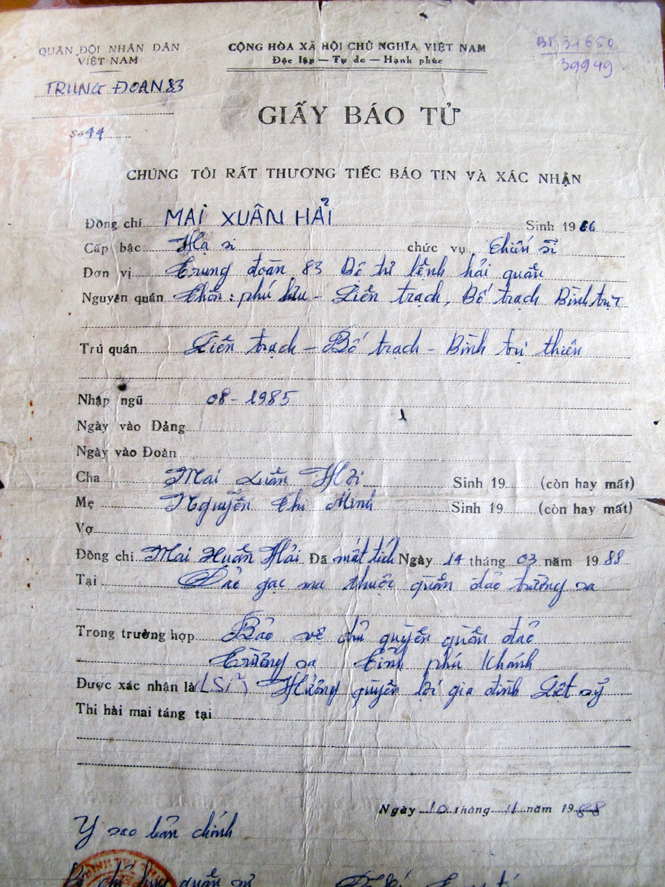 QUÂN ĐỘI NHÂN DÂN
VIỆT NAM
TRUNG ĐOÀN 83
Số 44
CỘNG HÒA XÃ HỘI CHỦ NGHĨA VIỆT NAM
Độc lập — Tự do — Hạnh phúc
39949
GIẤY BÁO TỬ
CHÚNG TÔI RẤT THƯƠNG TIẾC BÁO TIN VÀ XÁC NHẬN
Đồng chí MAI XUÂN HẢI Sinh 1966
Cấp bậc Hạ sĩ chức vụ chiến sĩ
Đơn vị Trung đoàn 83 Bộ tư lệnh hải quân
Nguyên quán Thôn: phú hữu - Liên trạch, Bố trạch Bình trị
Trú quán Liên trạch - Bố trạch - Bình trị thiên
Nhập ngũ 08-1985
Ngày vào Đảng
Ngày vào Đoàn
Cha Mai Xuân Hời Sinh 19 (còn hay mất)
Mẹ Nguyễn Thị Minh Sinh 19 (còn hay mất)
Vợ
Đồng chí Mai Xuân Hải Đã mất tích Ngày 14 tháng 03 năm 1988
Tại Đảo gạc ma thuộc quần đảo trường sa
Trong trường hợp Bảo vệ chủ quyền quần đảo
Trường sa tỉnh phú Khánh
Được xác nhận là (LSĩ) Hưởng quyền lợi gia đình Liệt sỹ
Thi hài mai táng tại
Ngày 10 tháng 11 năm 1988
Y sao bản chính